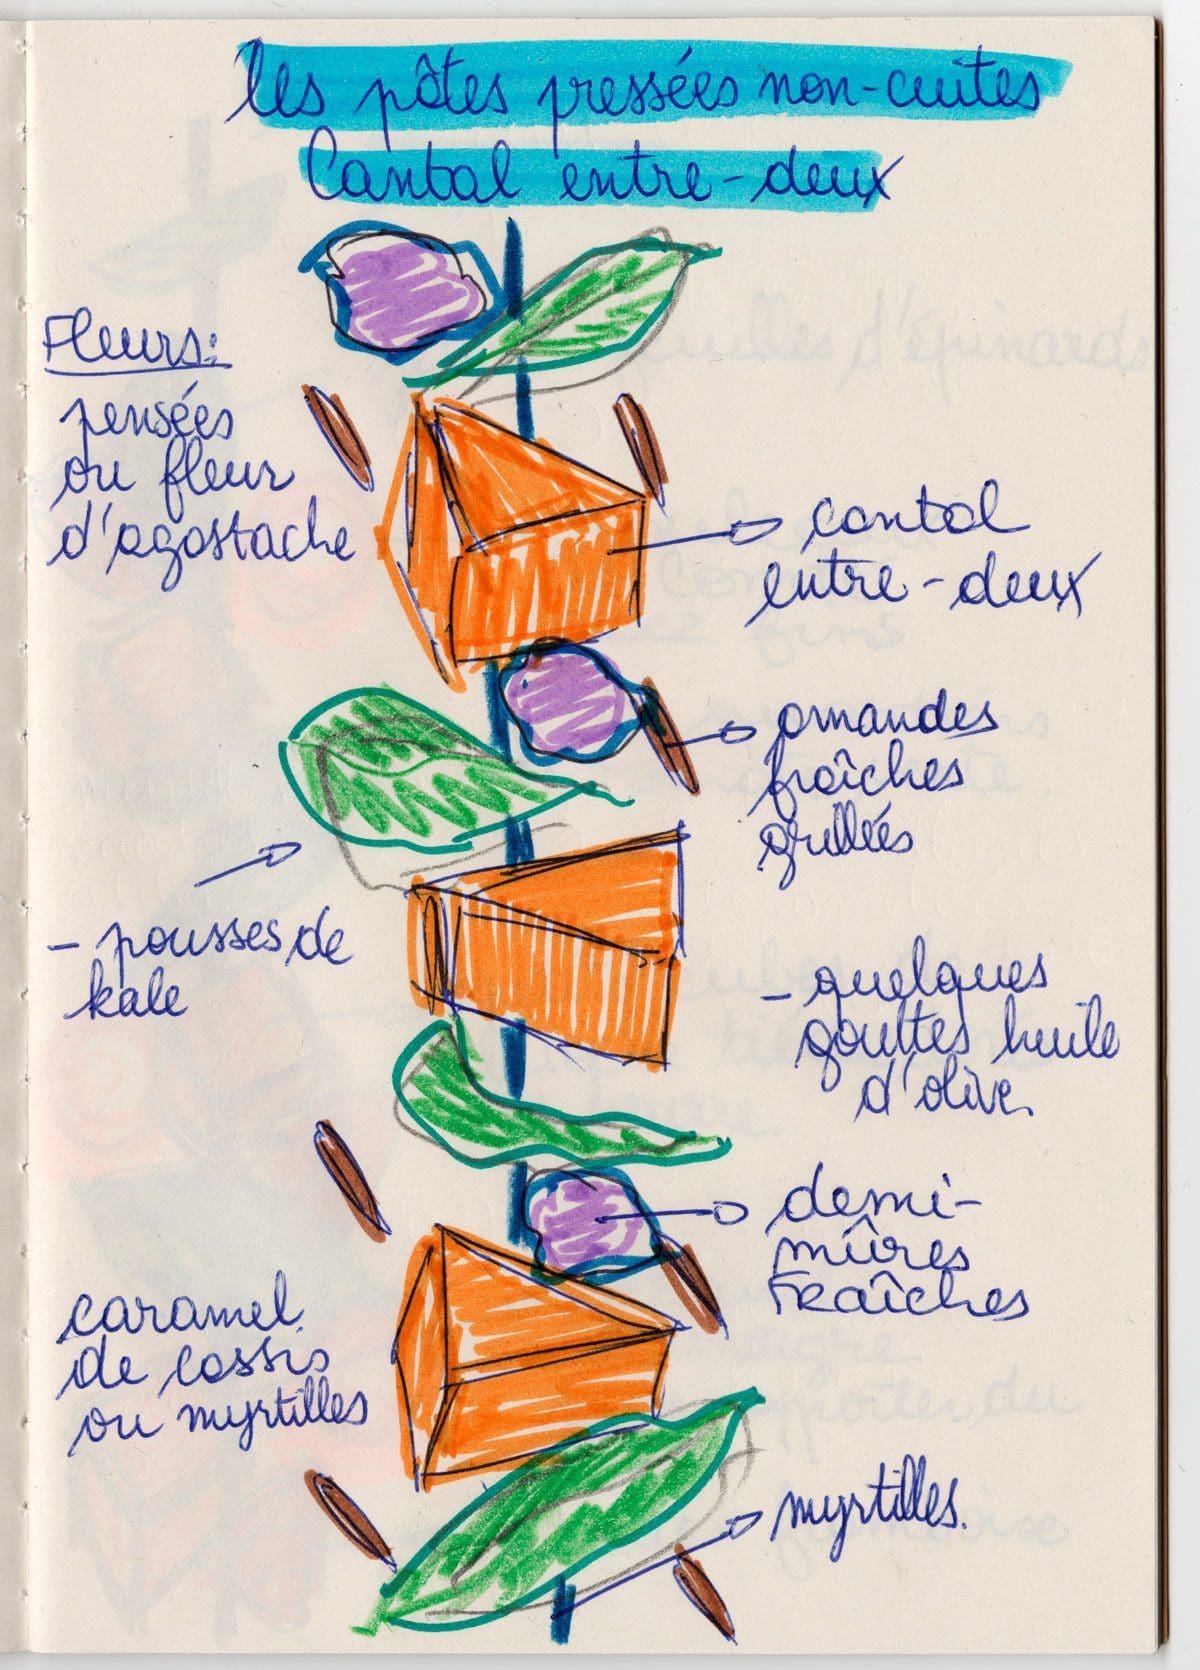 les pâtes pressées non-cuites
Cantal entre-deux
Fleurs:
pensées
ou fleur
d'agostache
cantal
entre-deux
amandes
fraîches
grillées
- pousses de
kale
- quelques
gouttes huile
d'olive.
demi-
mûres
fraîches
caramel
de cassis
ou myrtilles
myrtilles.